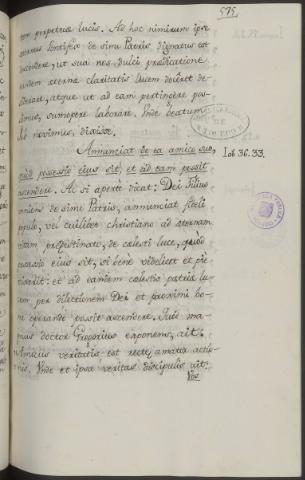 575.
tem perpetuæ lucis. Ad hoc nimirum ipse
æternus Pontifex de sinu Patris dignatus est
descendere, ut sua nos dulci prædicatione
eidem æternæ claritatis lucem doceret de-
siderare, atque ut ad eam pertingere pos-
simus, summopere laborare. Unde beatum
Job novimus, dixisse.
Annunciat de ea amico suo,
quod possessio ejus sit, et ad eam possit
ascendere.
Job 36. 33.
Ac si aperte dicat: Dei Filius
veniens de sinu Patris, annunciat fideli
populo, vel cuilibet christiano ad æternam
vitam prædestinato, de cælesti luce, quod
possessio ejus sit, si bene videlicet et pie
vixerit: et ad eamdem cælestis patriæ lu-
cem, per dilectionem Dei et proximi bo-
na operando possit ascendere. Quæ ma-
gnus doctor Gregorius exponens, ait:
Amicus veritatis est rectæ amator actio-
nis. Unde et ipsa veritas discipulis ait:
Vos